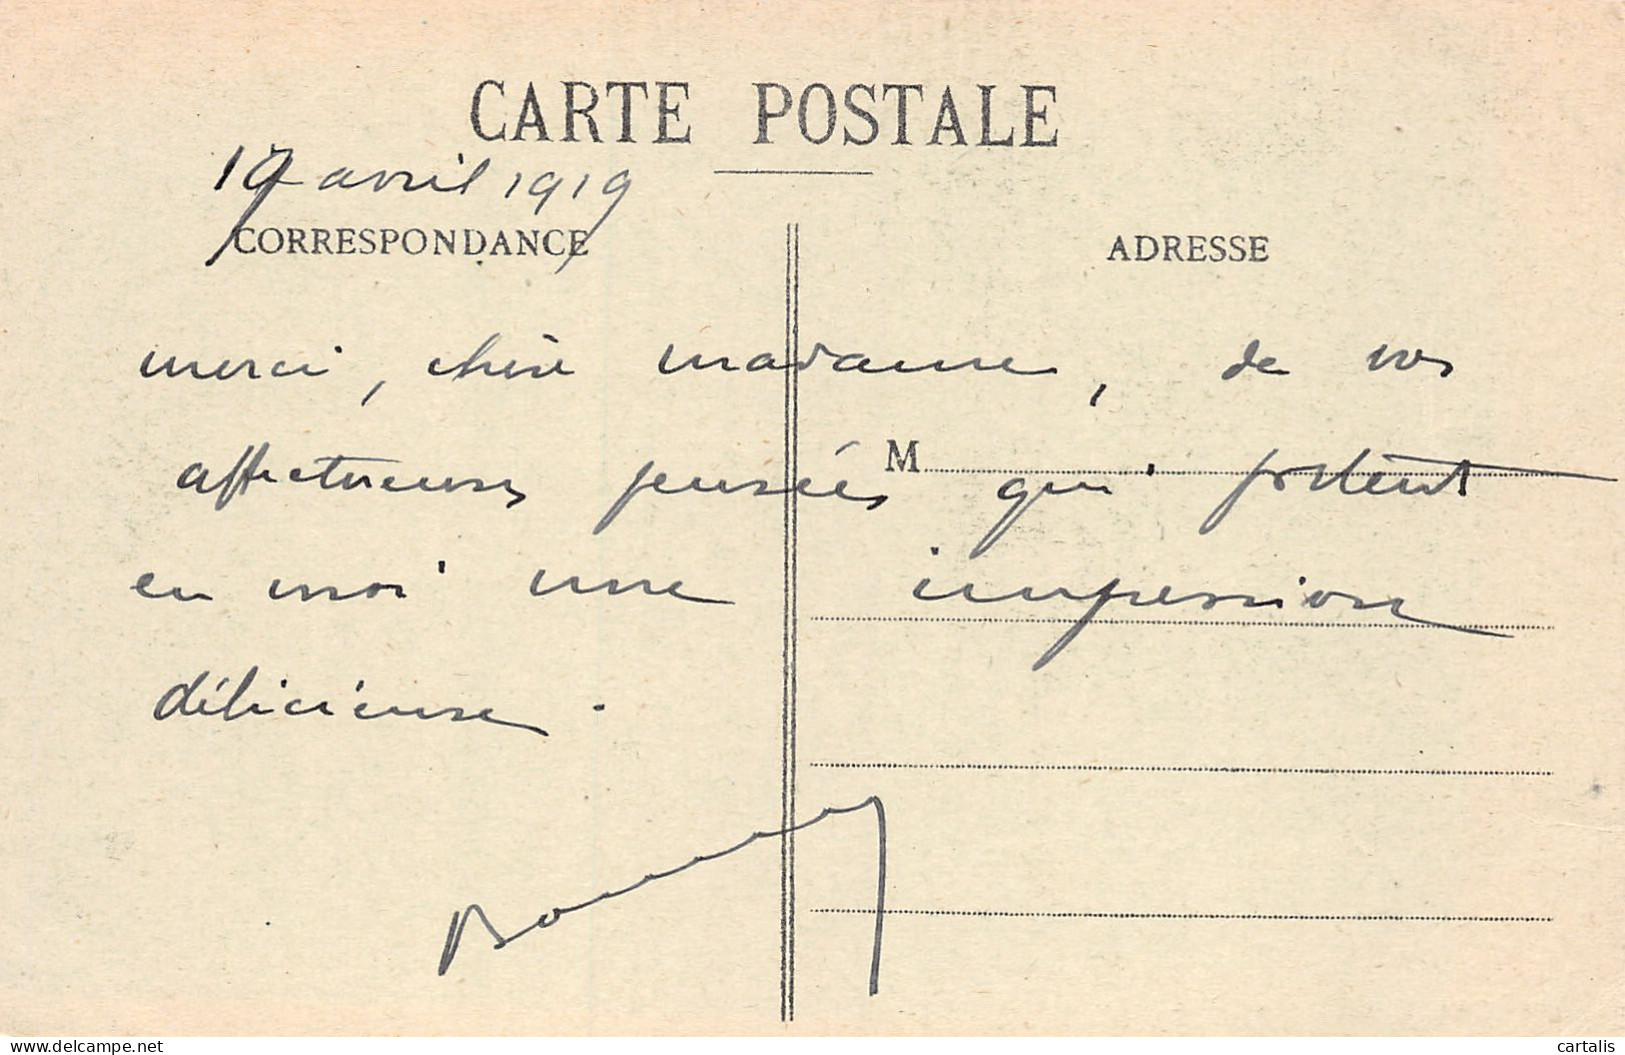 CARTE POSTALE
17 avril 1919
CORRESPONDANCE
ADRESSE
merci, chère madame, de vos
affectueuses pensées qui
M
en moi une impression
délicieuse.
www.delcampe.net
cartalis